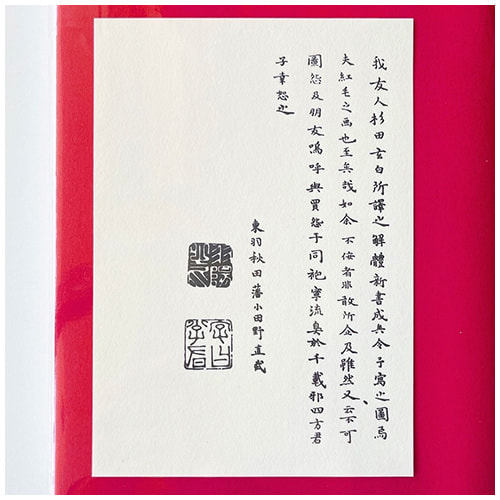 我友人杉田玄白所譯之解體新書成其令予寫之圖焉
夫紅毛之画也至矣哉如余不佞者非敢所企及雖然又云不可
圖怨及朋友嗚呼與買怨于同袍寧流臭於千載邪四方君
子幸恕之
東羽秋田藩小田野直武